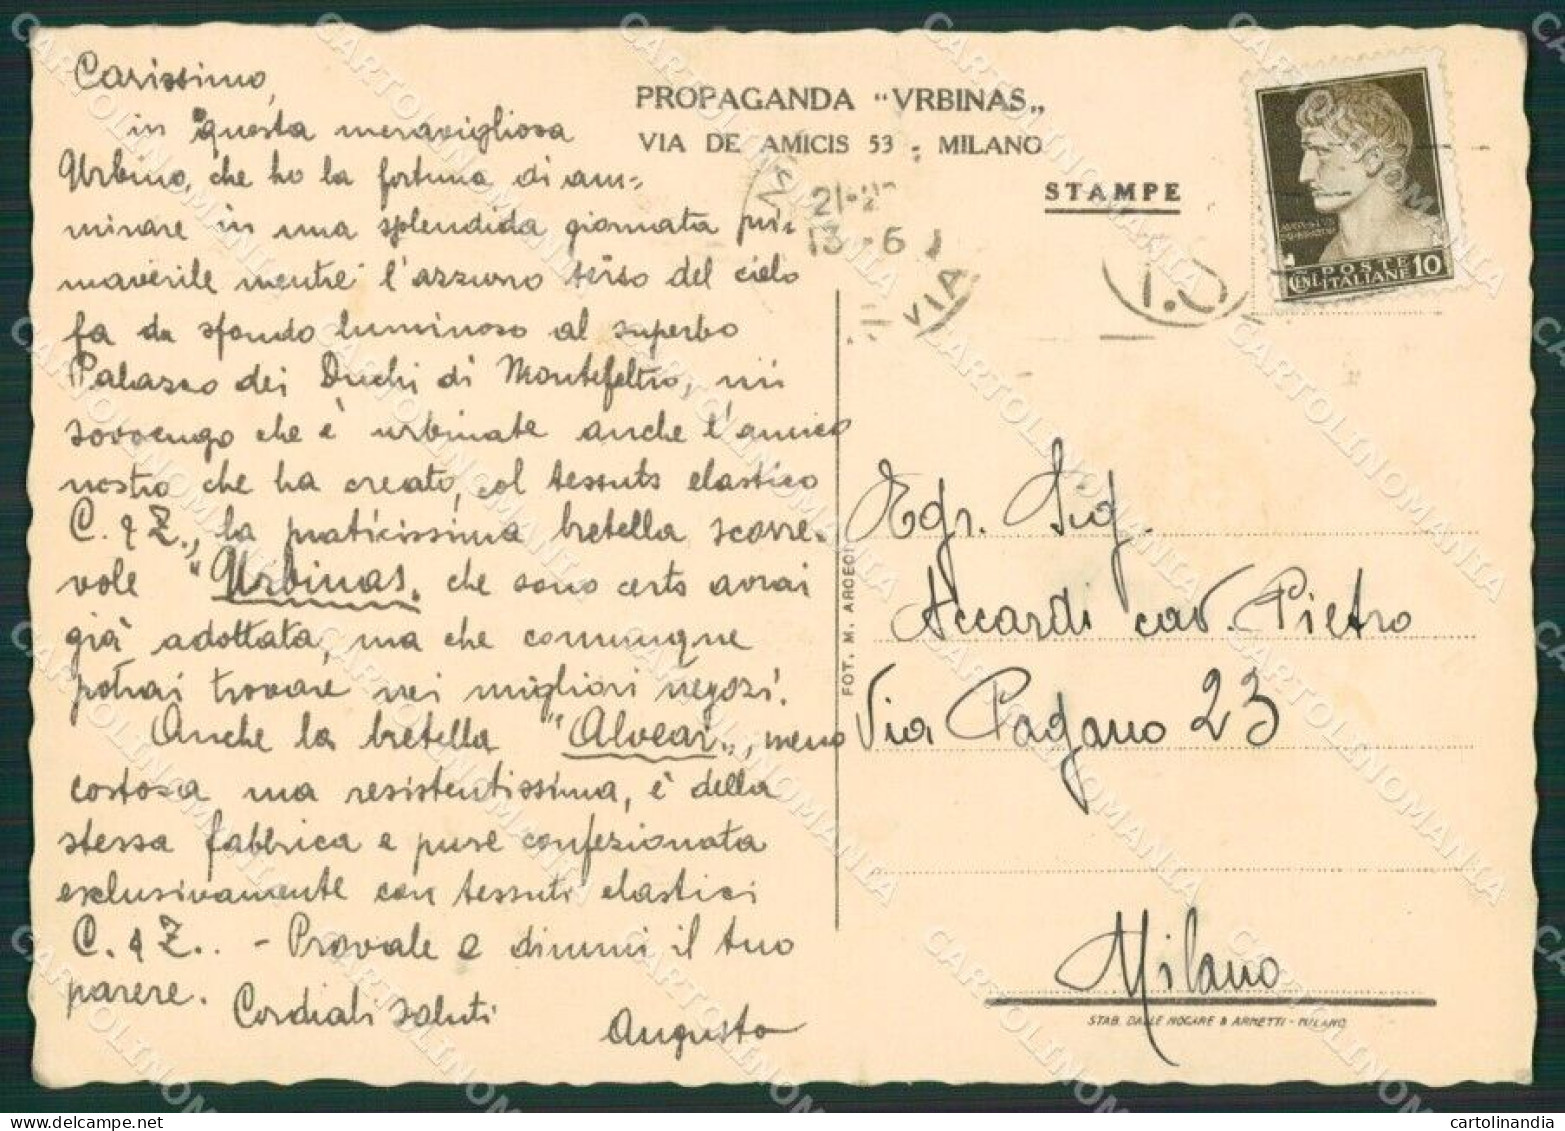 Carissimo,
in questa meravigliosa
Urbino, che ho la fortuna di am=
mirare in una splendida giornata pri-
maverile mentre l'azzurro terso del cielo
fa da sfondo luminoso al superbo
Palazzo dei Duchi di Montefeltro, mi
sovvengo che è urbinate anche l'amico
nostro che ha creato, col tessuto elastico
C. & Z., la praticissima bretella scorre-
vole "Urbinas„ che sono certo avrai
già adottata, ma che comunque
potrai trovare nei migliori negozi.
Anche la bretella "Alvear„, meno
costosa ma resistentissima, è della
stessa fabbrica e pure confezionata
esclusivamente con tessuti elastici
C. & Z.. - Provale e dimmi il tuo
parere.
Cordiali saluti
Augusto
PROPAGANDA "VRBINAS„
VIA DE AMICIS 53 - MILANO
STAMPE
13 - 6
VIA
T.O
POSTE
CENT. ITALIANE 10
FOT. M. ARCECI
Egr. Sig.
Accardi cav. Pietro
Via Pagano 23
Milano
STAB. DALLE NOGARE & ARMETTI - MILANO
CARTOLINOMANIA
cartolinandia